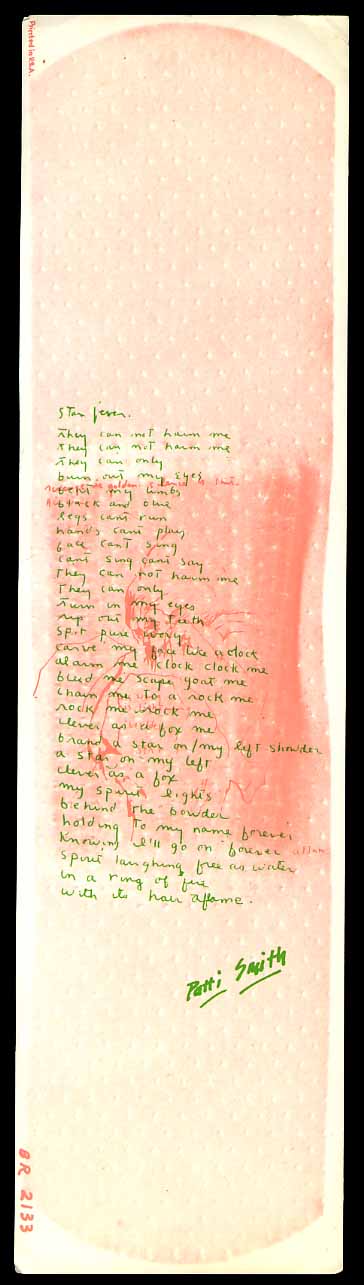 Printed in U.S.A.
star fever.
they can not harm me
they can not harm me
they can only
burn out my eyes
my limbs
black and blue
legs cant run
hands cant play
face cant sing
cant sing cant say
they can not harm me
they can only
turn in my eyes
rip out my teeth
spit pure ivory
carve my face like a clock
alarm me clock clock me
bleed me scape goat me
chain me to a rock me
rock me rock me
clever as a fox me
brand a star on/my left shoulder
a star on my left
clever as a fox
my spirit lights
behind the bowder
holding to my name forever
Knowing I'll go on forever
spirit laughing free as water
in a ring of fire
with its hair aflame.
Patti Smith
BR 2133